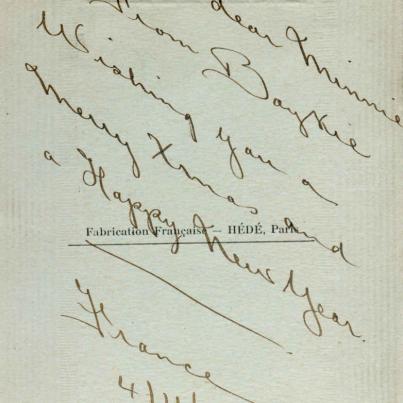 dear Minnie
From Baykie
Wishing you a
Merry Xmas and
a Happy New Year.
Fabrication Française — HÉDÉ, Paris
France